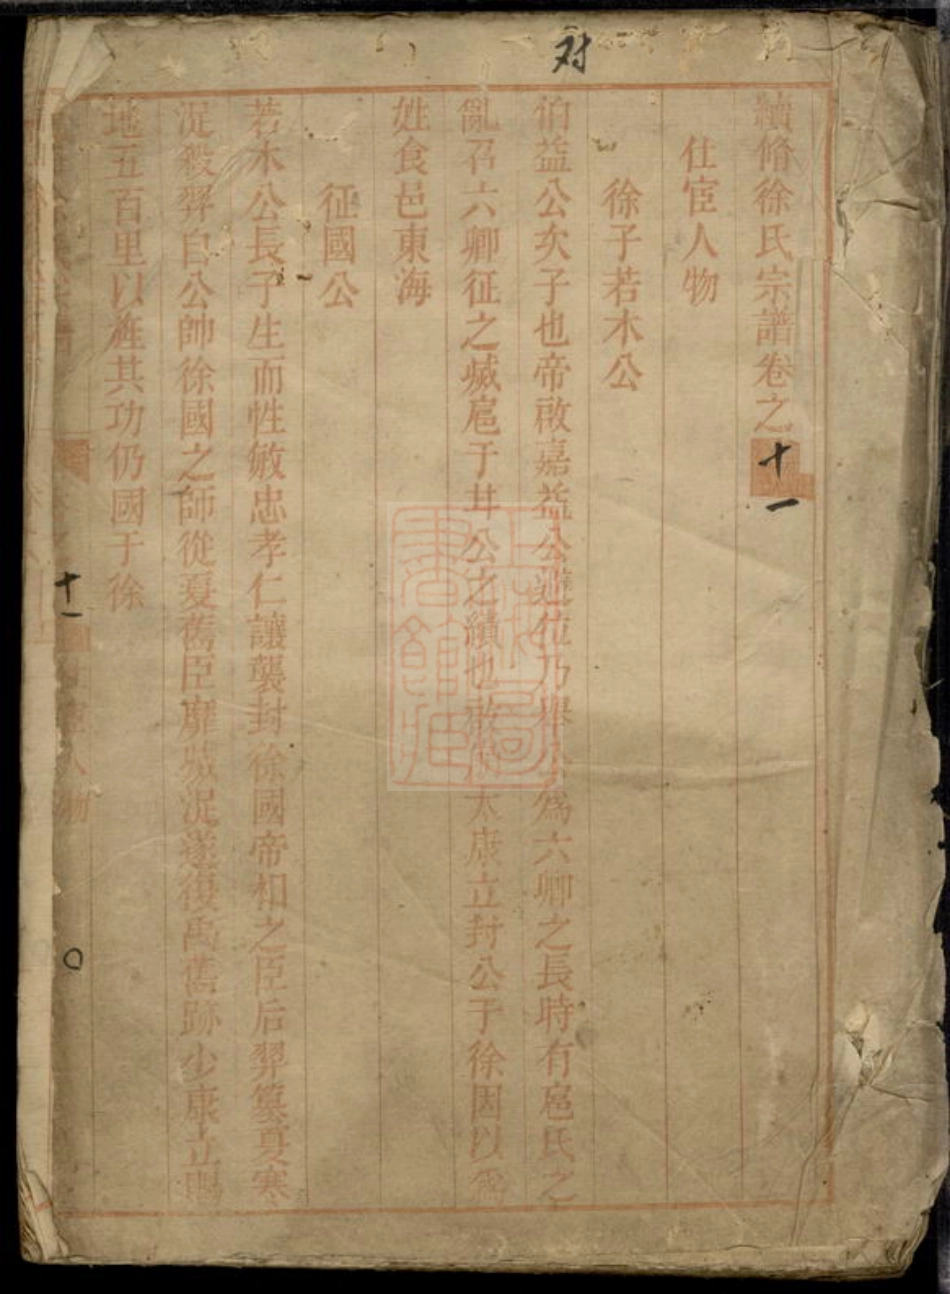 对
續脩徐氏宗譜卷之十一
仕宦人物
徐子若木公
伯益公次子也帝啟嘉益公遜位乃舉公為六卿之長時有扈氏之
亂召六卿征之滅扈于甘公之績也故太康立封公于徐因以為
姓食邑東海
征國公
若木公長子生而性敏忠孝仁讓襲封徐國帝相之臣后羿篡夏寒
浞殺羿自公帥徐國之師從夏舊臣靡滅浞遂復禹舊跡少康立賜
地五百里以旌其功仍國于徐
十一
仕宦人物